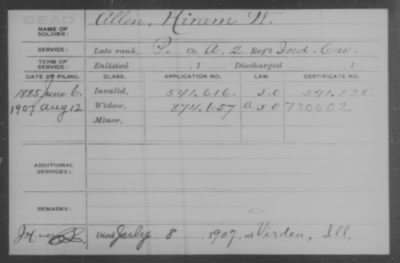 DEAD
NAME OF SOLDIER: Allen, Hiram W.
SERVICE: Late rank, P. Co. A, 2 Reg't Ind. Cav.
TERM OF SERVICE: Enlisted , 1 Discharged , 1
DATE OF FILING. CLASS. APPLICATION NO. LAW. CERTIFICATE NO.
1885 June 6. Invalid, 541.616.
1907 Aug 12 Widow, 730602
Minor,
ADDITIONAL SERVICES:
REMARKS:
Died July 8 1907, at Virden, Ill.